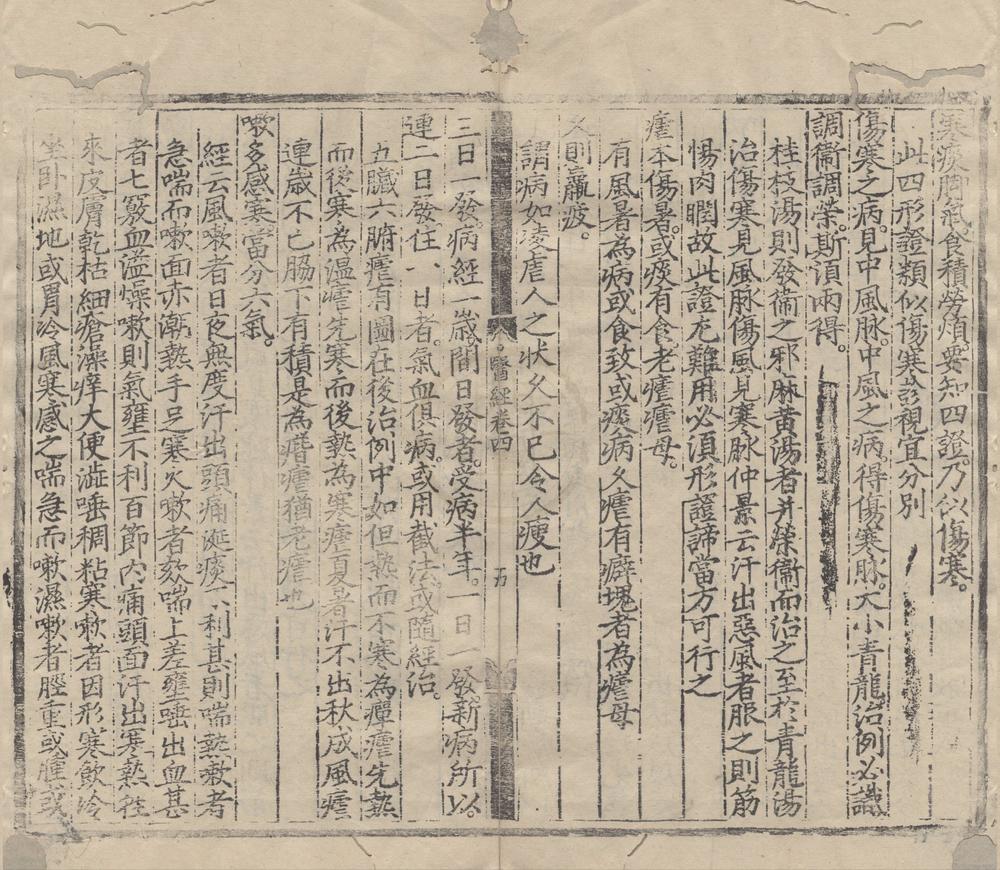 寒痰脚氣食積勞煩要知四證乃似傷寒。
此四形證類似傷寒彭視宜分別
傷寒之病。見中風脉。中風之病。得傷寒脉。大小青龍治例必識
調衞調榮。斯須兩得。
桂枝湯則發衞之邪麻黃湯者并榮衞而治之至於青龍湯
治傷寒見風脉傷風見寒脉仲景云汗出惡風者服之則筋
惕肉瞤故此證尤難用必須形證諦當方可行之
瘧本傷暑。或痰有食。老瘧瘧母。
有風暑為病或食致或痰病久瘧有癖塊者為瘧母
久則羸疲。
謂病如凌虐人之狀久不已令人瘦也
醫經卷四
九
三日一發。病經一歲。間日發者。受病半年。一日一發新病所以。
連二日發住一日者。氣血俱病。或用截法或隨經治。
五臟六腑瘧有圖在後治例中如但熱而不寒為癉瘧先熱
而後寒為溫瘧先寒而後熱為寒瘧夏暑汗不出秋成風瘧
連歲不亡脇下有積是為痞瘧猶老瘧也
嗽多感寒當分六氣。
經云風嗽者日夜無度汗出頭痛涎痰不利甚則喘熱嗽者
急喘而嗽面赤潮熱手足寒火嗽者欬喘上差壅唾出血甚
者七竅血溢燥嗽則氣壅不利百節內痛頭面汗出寒熱往
來皮膚乾枯細瘡瀑痒大便澁唾稠粘寒嗽者因形寒飲冷
坐卧濕地或胃冷風寒感之喘急而嗽濕嗽者脛重或腫或